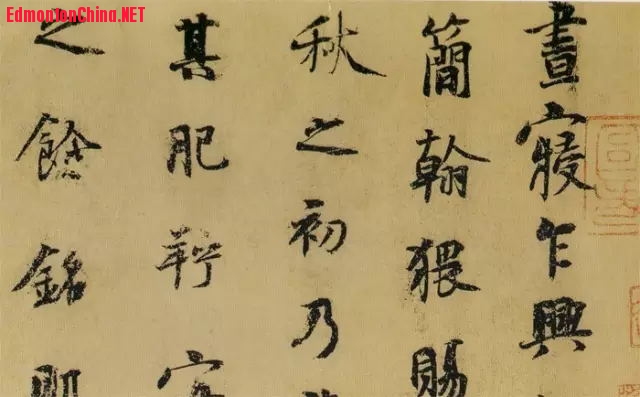 EdmontonChina.NET
晝寢乍興
簡翰猥賜
秋之初乃
其肥羜
之餘銘